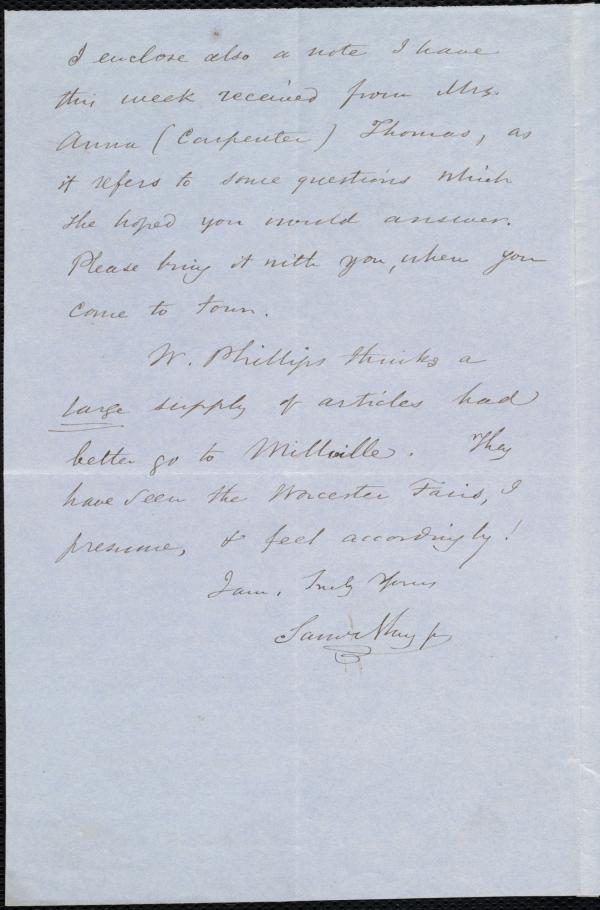 I enclose also a note I have
this week received from Mrs.
Anna (Carpenter) Thomas, as
it refers to some questions which
she hoped you would answer.
Please bring it with you, when you
come to town.
W. Phillips thinks a
large supply of articles had
better go to Millville. They
have seen the Worcester Fairs, I
presume, & feel accordingly!
I am, Truly Yours
Saml May jr